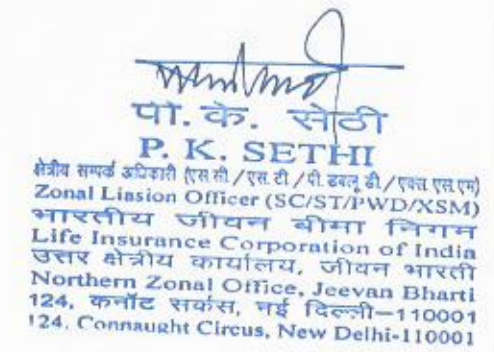 पी. के. सेठी
P. K. SETHI
क्षेत्रीय सम्पर्क अधिकारी (एस.सी./एस.टी./पी.डबलू.डी/एक्स.एस.एम)
Zonal Liasion Officer (SC/ST/PWD/XSM)
भारतीय जीवन बीमा निगम
Life Insurance Corporation of India
उत्तर क्षेत्रीय कार्यालय, जीवन भारती
Northern Zonal Office, Jeevan Bharti
124, कनॉट सर्कस, नई दिल्ली-110001
124, Connaught Circus, New Delhi-110001